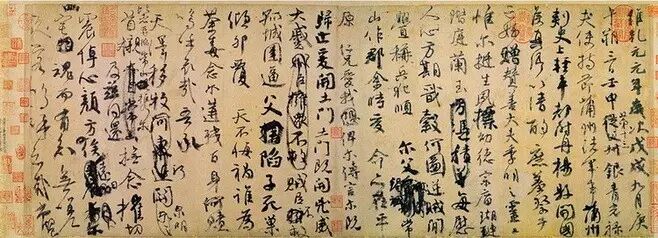 維乾元元年歲次戊戌九月庚
午朔三日壬申第十三叔銀青光祿
夫使持節蒲州諸軍事蒲州
刺史上輕車都尉丹楊縣開國
侯真卿以清酌庶羞祭于
亡姪贈贊善大夫季明之靈
惟爾挺生夙標幼德宗廟瑚璉
階庭蘭玉每慰
人心方期戩穀何圖逆賊閒
釁稱兵犯順爾父竭誠
山作郡余時受命亦在平
原仁兄愛我俾爾傳言爾既
歸止爰開土門土門既開兇威
大蹙賊臣不救
孤城圍逼父陷子死巢
傾卵覆天不悔禍誰為
荼毒念爾遘殘百身何贖
嗚呼哀哉吾承
天澤移牧河關泉明
首櫬及茲同還撫念摧切
震悼心顏方俟
魂而有知無嗟
久客嗚呼哀哉尚饗